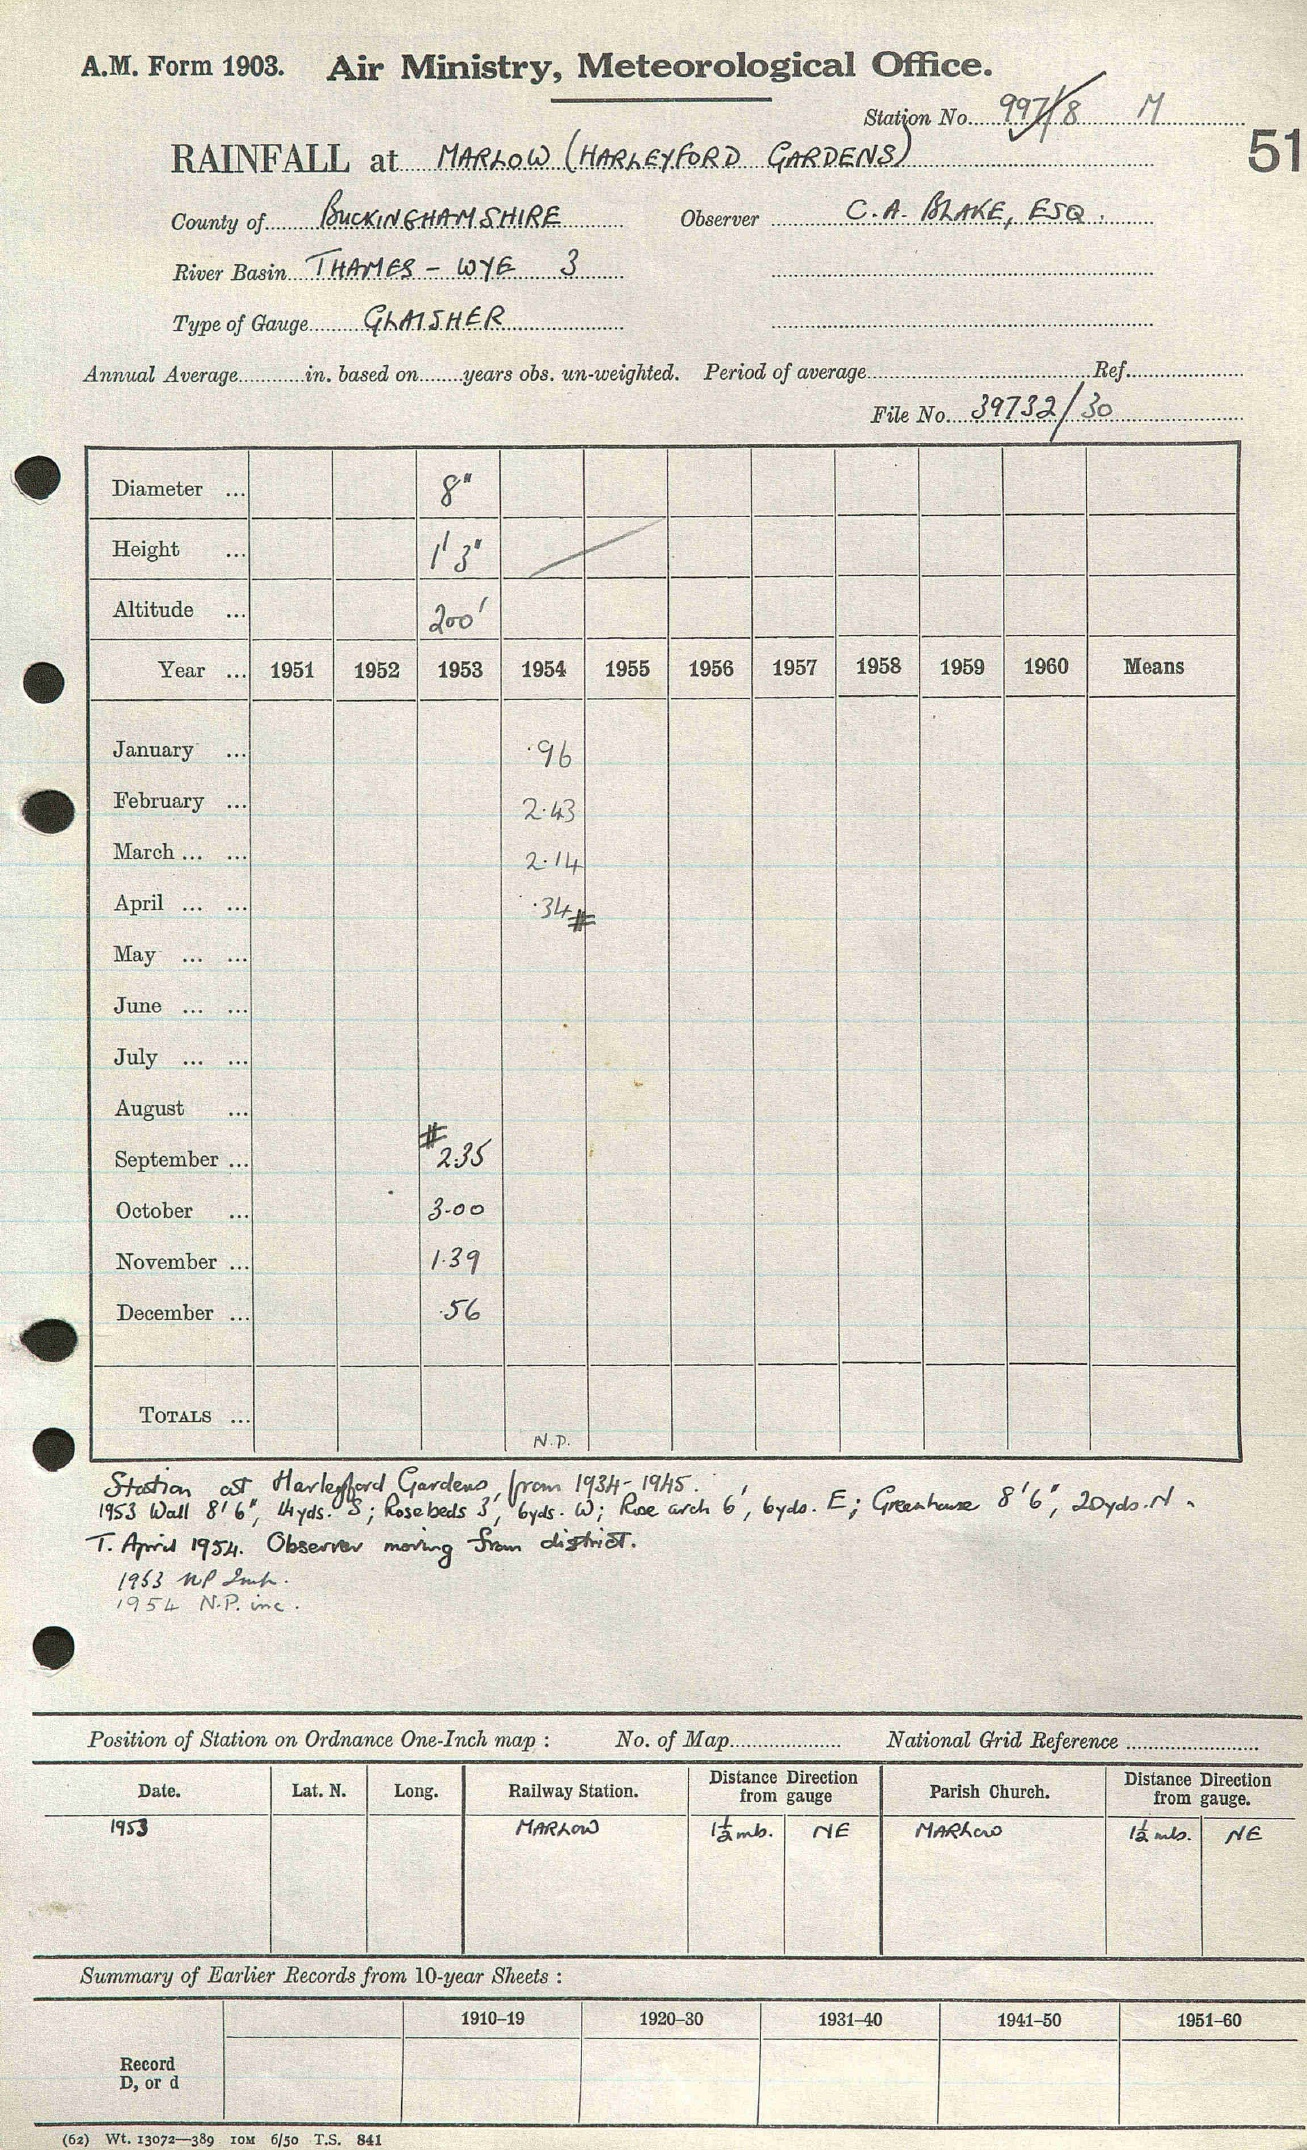 A.M. Form 1903. Air Ministry, Meteorological Office.
Station No. 997/8 M
51
RAINFALL at MARLOW (HARLEYFORD GARDENS)
County of BUCKINGHAMSHIRE Observer C.A. BLAKE, ESQ.
River Basin THAMES - WYE 3
Type of Gauge GLAISHER
Annual Average in. based on years obs. un-weighted. Period of average Ref.
File No. 39732/30
Diameter ... 8"
Height ... 1' 3"
Altitude ... 200'
Year ... 1951 1952 1953 1954 1955 1956 1957 1958 1959 1960 Means
January ... ·96
February ... 2·43
March ... ... 2·14
April ... ... ·34 #
May ... ...
June ... ...
July ... ...
August ...
September ... # 2·35
October ... 3·00
November ... 1·39
December ... ·56
TOTALS ... N.P.
Station at Harleyford Gardens, from 1934-1945.
1953 Wall 8' 6", 14yds. S; Rosebeds 3', 6yds. W; Rose arch 6', 6yds. E; Greenhouse 8'6", 20yds. N.
T. April 1954. Observer moving from district.
1953 NP
1954 N.P. inc.
Position of Station on Ordnance One-Inch map : No. of Map National Grid Reference
Date. Lat. N. Long. Railway Station. Distance from gauge Direction Parish Church. Distance from gauge. Direction
1953 MARLOW 1½ mls. NE MARLOW 1½ mls. NE
Summary of Earlier Records from 10-year Sheets :
1910–19 1920–30 1931–40 1941–50 1951–60
Record
D, or d
(62) Wt. 13072—389 10M 6/50 T.S. 841